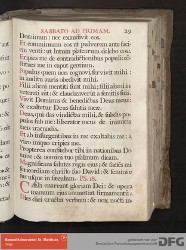 SABBATO AD PRIMAM. 29
Dominum: nec exaudivit eos.
Et comminuam eos ut pulverem ante faci-
em venti: ut lutum platearum delebo eos.
Eripies me de contradictionibus populi: con-
stitues me in caput gentium.
Populus quem non cognovi, servivit mihi:
in auditu auris obedivit mihi.
Filii alieni mentiti sunt mihi; filii alieni in-
veterati sunt: et claudicaverunt a semitis suis.
Vivit Dominus & benedictus Deus meus:
& exaltetur Deus salutis meæ.
Deus, qui das vindictas mihi, & subdis po-
pulos sub me: liberator meus de inimicis
meis iracundis.
Et ab insurgentibus in me exaltabis me: a
viro iniquo eripies me.
Propterea confitebor tibi in nationibus Do-
mine: & nomini tuo psalmum dicam.
Magnificans salutes regis ejus: & faciens mi-
sericordiam christo suo David: & semini e-
jus usque in seculum. Ps. 18.
Cæli enarrant gloriam Dei: & opera
manuum ejus annuntiat firmamentum.
Dies diei eructat verbum: & nox no-
DFG